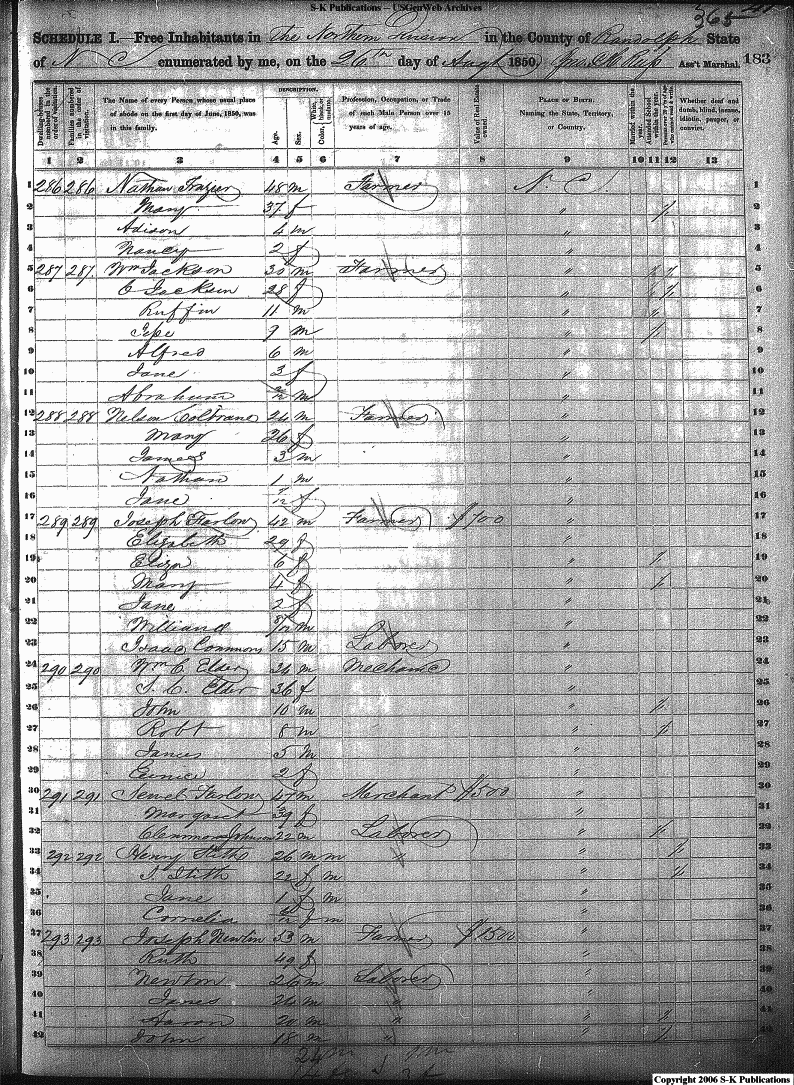 S-K Publications – USGenWeb Archives
365
SCHEDULE I.—Free Inhabitants in The Northern Division in the County of Randolph State
of N C enumerated by me, on the 26th day of Augt 1850. Ass't Marshal. 183
Dwelling-houses numbered in the order of visitation.
Families numbered in the order of visitation.
The Name of every Person whose usual place of abode on the first day of June, 1850, was in this family.
DESCRIPTION.
Age.
Sex.
White, black, or mulatto. Color,
Profession, Occupation, or Trade of each Male Person over 15 years of age.
Value of Real Estate owned.
PLACE OF BIRTH. Naming the State, Territory, or Country.
Married within the year.
Attended School within the year.
Whether deaf and dumb, blind, insane, idiotic, pauper, or convict.
1 2 3 4 5 6 7 8 9 10 11 12 13
1 286 286 Nathan Frazier 48 m Farmer N. C. 1
2 Mary 37 f " / 2
3 Adison 4 m " 3
4 Nancy 2 f " 4
5 287 287 Wm Jackson 30 m Farmer " / / 5
6 C Jackson 28 f " / / 6
7 Ruffin 11 m " / 7
8 9 m " / 8
9 Alfred 6 m " 9
10 Jane 3 f " 10
11 Abraham m " 11
12 288 288 Nelson Coltrane 24 m Farmer " 12
13 Mary 26 f " 13
14 James 3 m " 14
15 Nathan 1 m " 15
16 Jane f " 16
17 289 289 Joseph Farlow 42 m Farmer $700 " 17
18 Elizabeth 29 f " 18
19 Eliza 6 f " / 19
20 Mary 4 f " / 20
21 Jane 2 f " 21
22 William 8/12 m " 22
23 Isaac Commons 15 m Laborer " 23
24 290 290 Wm C Elder 34 m Mechanic " 24
25 S. C. Elder 36 f " 25
26 John 10 m " / 26
27 Robt 8 m " / 27
28 James 5 m " 28
29 Eunice 2 f " 29
30 291 291 Sewel Farlow 47 m Merchant $500 " 30
31 Margaret 39 f " 31
32 22 m Laborer " / 32
33 292 292 Henry Stith 26 m m " " / 33
34 S. Stith 22 f m " / 34
35 Jane 1 f m " 35
36 Cornelia f m " 36
37 293 293 Joseph Newlin 53 m Farmer $1500 " 37
38 Ruth 49 f " 38
39 Newton 26 m Laborer " 39
40 James 24 m " " 40
41 Aaron 20 m " " / 41
42 John 18 m " " / 42
Copyright 2006 S-K Publications